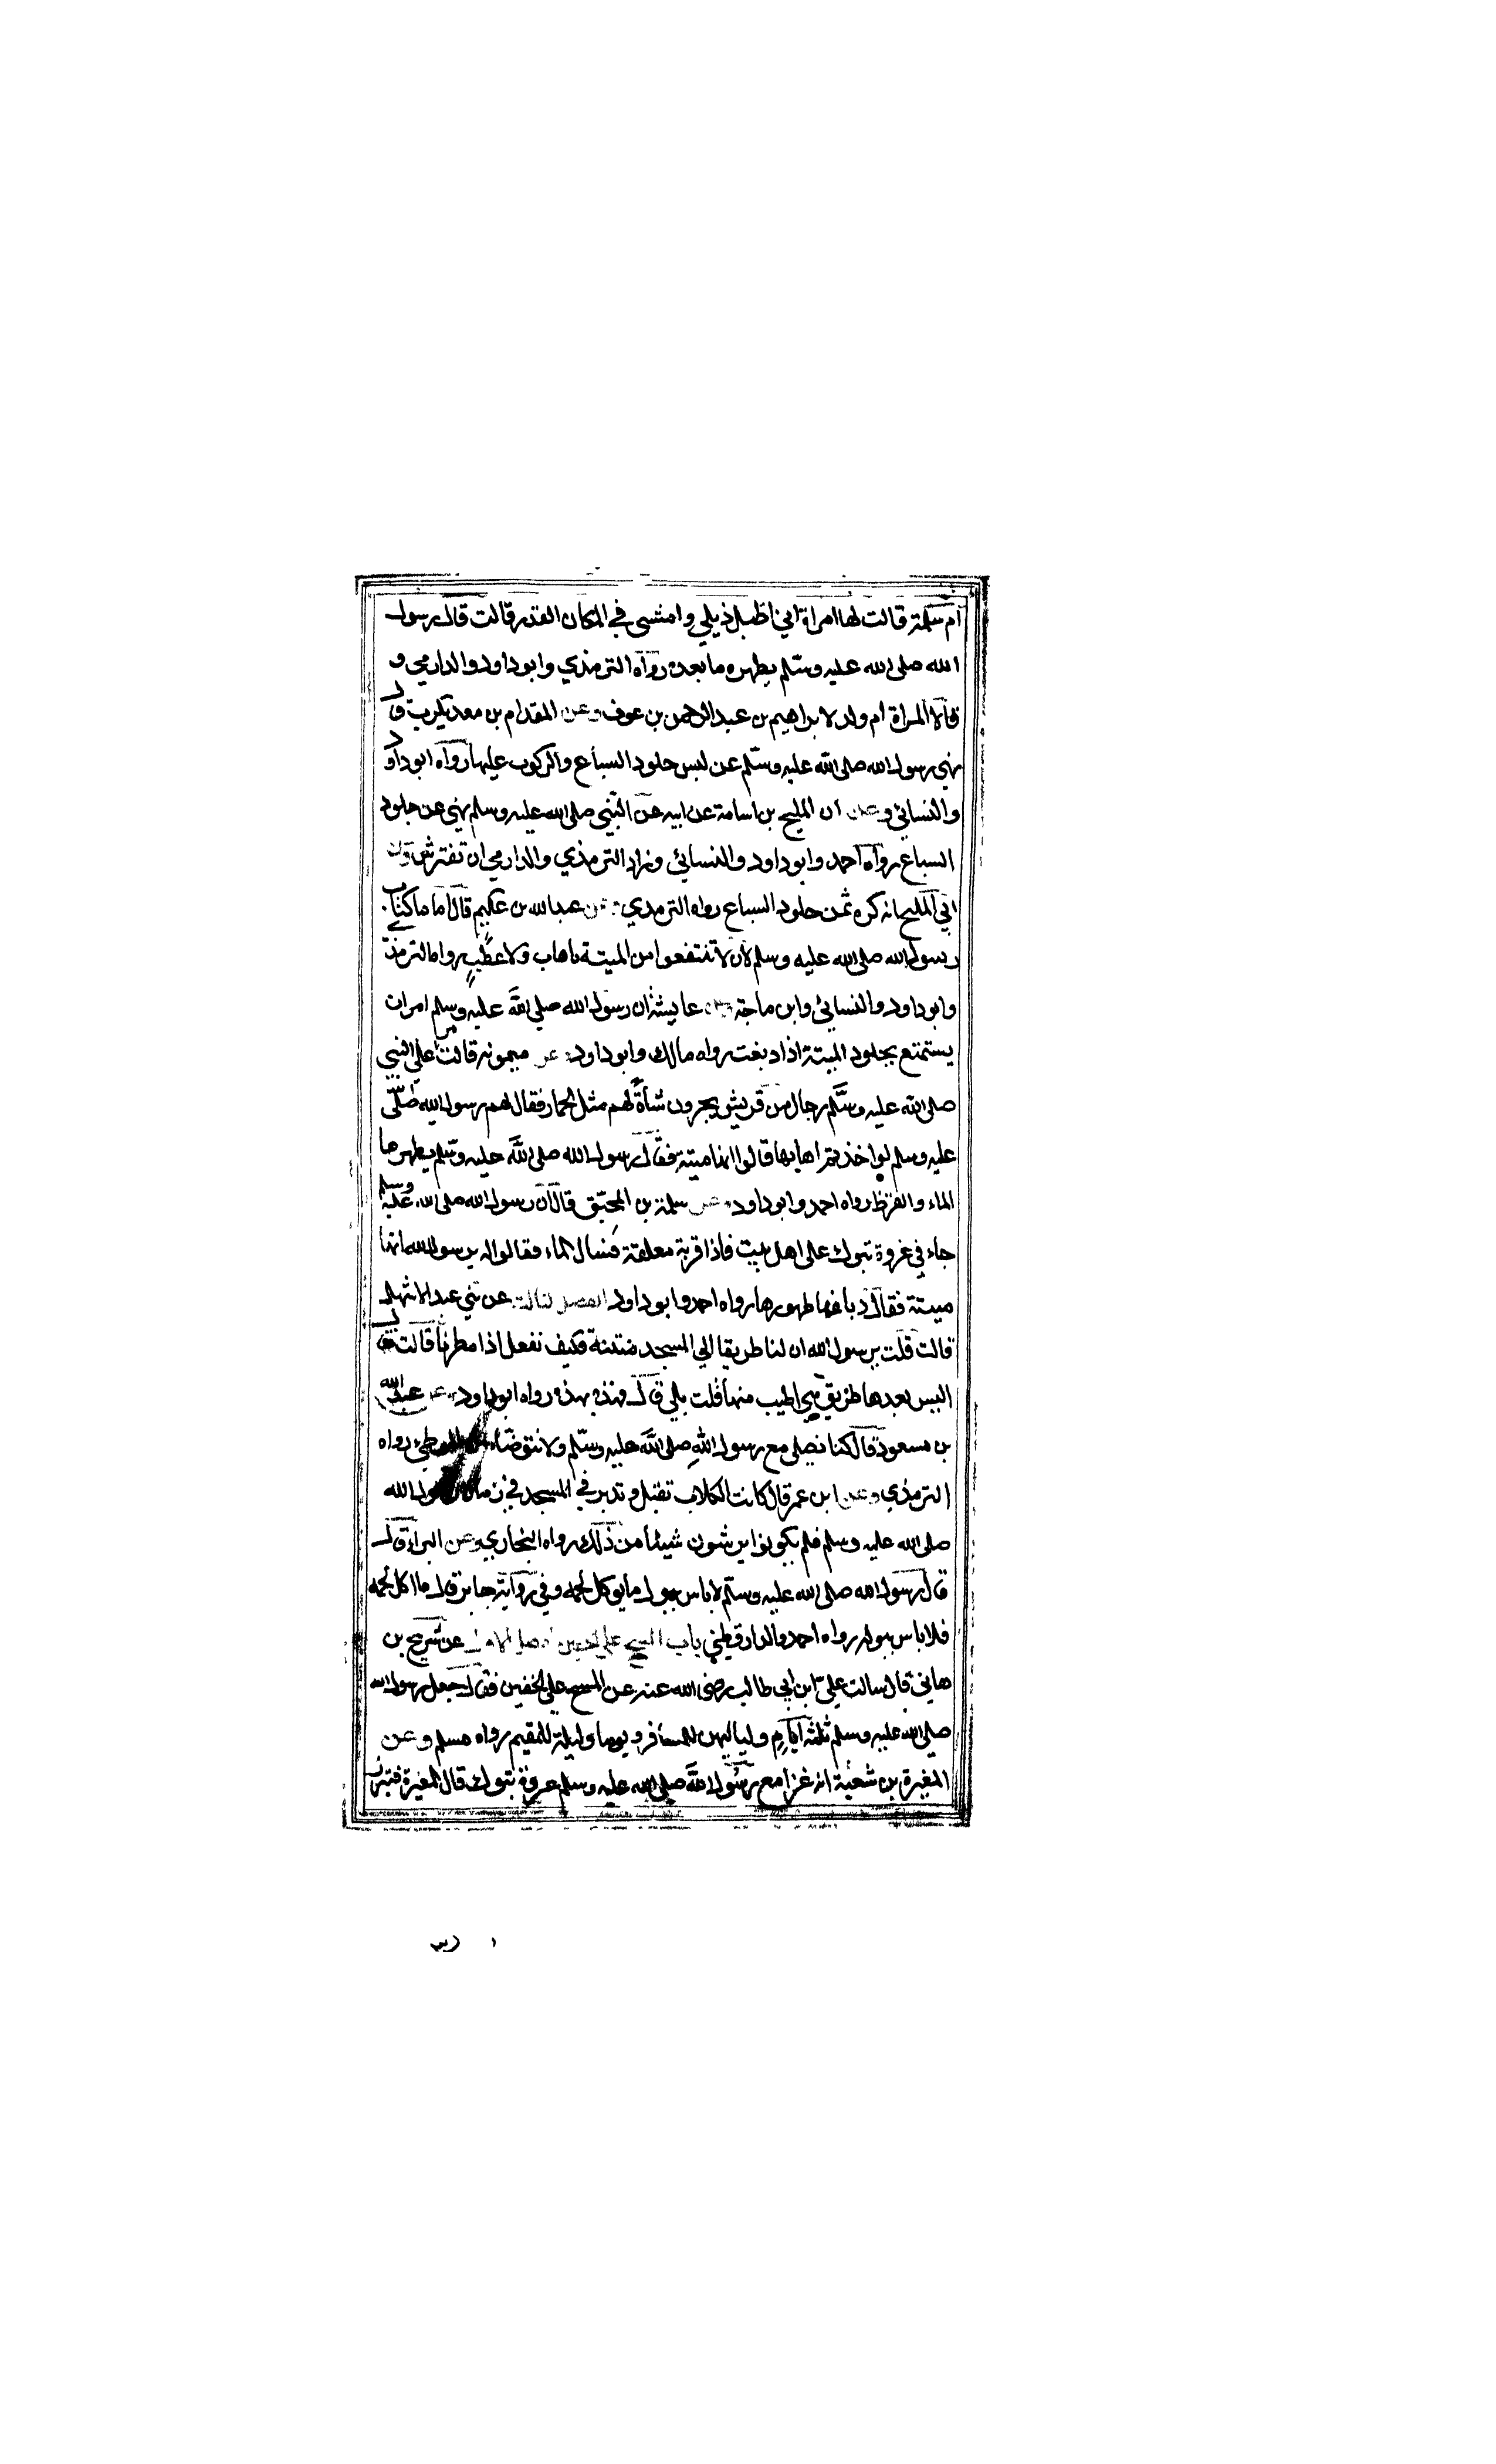 ام سلمة قالت لها امراة اني اطيل ذيلي وامشي في المكان القذر قالت قال رسول
الله صلى الله عليه وسلم يطهره ما بعده رواه الترمذي وابوداود والدارمي و
قالا المراة ام ولد لابراهيم بن عبد الرحمن بن عوف وعن المقدام بن معديكرب قال
نهي رسول الله صلى الله عليه وسلم عن لبس جلود السباع والركوب عليها رواه ابوداود
والنسائي وعن ابي المليح بن اسامة عن ابيه عن النبي صلى الله عليه وسلم نهي عن جلود
السباع رواه احمد وابوداود والنسائي وزاد الترمذي والدارمي ان تفترش وعن
ابي المليح انه كره ثمن جلود السباع رواه الترمذي وعن عبد الله بن عكيم قال اتانا كتاب
رسول الله صلى الله عليه وسلم ان لا تنتفعوا من الميتة باهاب ولا عصب رواه الترمذي
وابوداود والنسائي وابن ماجة وعن عايشة ان رسول الله صلي الله عليه وسلم امر ان
يستمتع بجلود الميتة اذا دبغت رواه مالك وابوداود وعن ميمونة قالت مر علي النبي
صلى الله عليه وسلم رجال من قريش يجرون شاة لهم مثل الحمار فقال لهم رسول الله صلى الله
عليه وسلم لو اخذتم اهابها قالوا انها ميتة فقال رسول الله صلى الله عليه وسلم يطهرها
الماء والقرظ رواه احمد وابوداود وعن سلمة بن المحبق قال ان رسول الله صلى الله عليه وسلم
جاء في غزوة تبوك على اهل بيت فاذا قربة معلقة فسال الماء فقالوا له يرسول الله انها
ميتة فقال دباغها طهورها رواه احمد وابوداود الفصل الثالث عن بني عبد الاشهل
قالت قلت يرسول الله ان لنا طريقا الي المسجد منتنة فكيف نفعل اذا مطرنا قالت فقال
اليس بعدها طريق هي اطيب منها قلت بلي قال فهذه بهذه رواه ابوداود وعن عبد الله
بن مسعود قال كنا نصلى مع رسول الله صلى الله عليه وسلم ولا نتوضاء من الموطي رواه
الترمذي وعن ابن عمر قال كانت الكلاب تقبل وتدبر في المسجد في زمان رسول الله
صلى الله عليه وسلم فلم يكونوا يرشون شيئا من ذلك رواه البخاري وعن البراء قال
قال رسول الله صلى الله عليه وسلم لا باس ببول ما يوكل لحمه وفي رواية جابر قال ما اكل لحمه
فلا باس ببوله رواه احمد والدارقطني باب المسح علي الخفين الفصل الاول عن شريح بن
هاني قال سالت علي ابن ابي طالب رضي الله عنه عن المسح علي الخفين فقال جعل رسول الله
صلي الله عليه وسلم ثلثة ايام ولياليهن للمسافر ويوما وليلة للمقيم رواه مسلم وعن
المغيرة بن شعبة انه غزا مع رسول الله صلي الله عليه وسلم غزوة تبوك قال المغيرة فتبرز